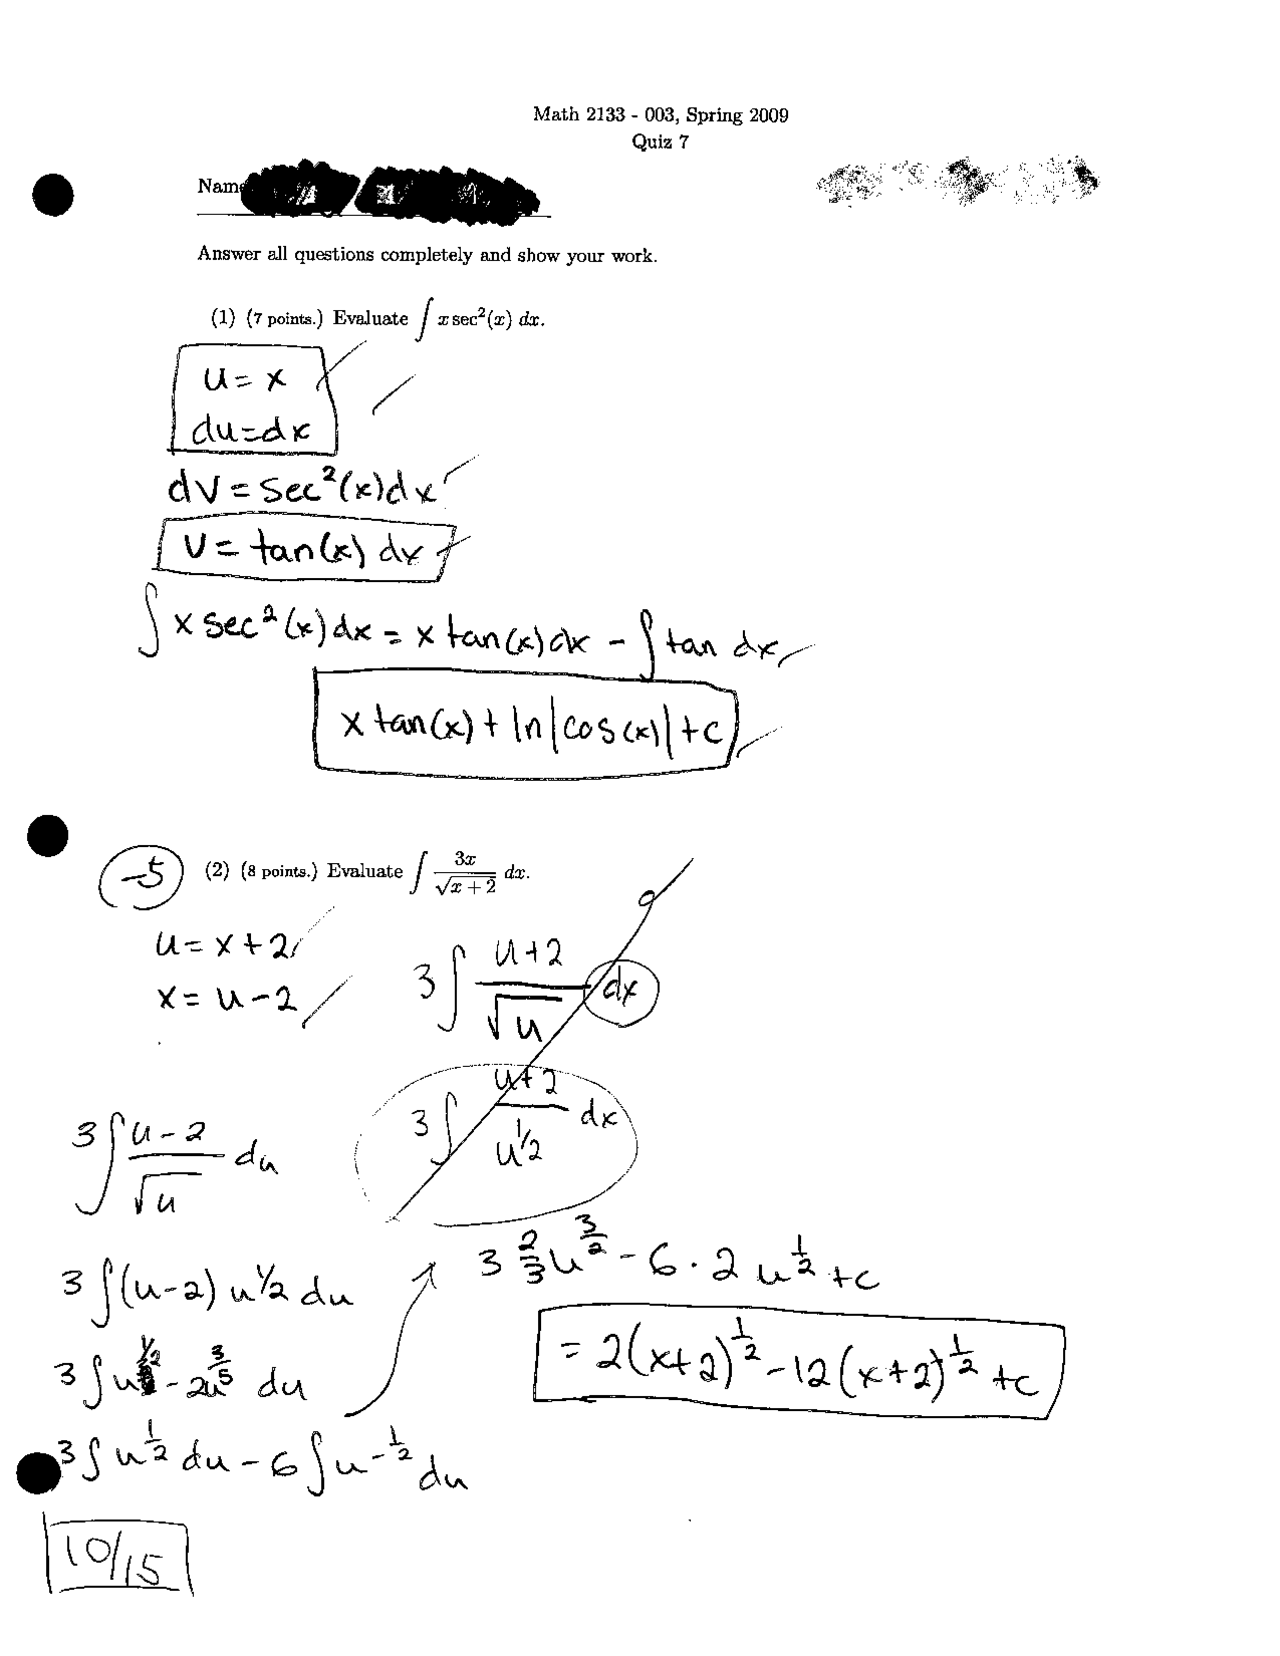 Math 2133 - 003, Spring 2009
Quiz 7
Name
Answer all questions completely and show your work.
(1) (7 points.) Evaluate ∫ x sec²(x) dx.
u = x
du = dx
dv = sec²(x)dx
v = tan(x) dx
∫ x sec²(x)dx = x tan(x)dx - ∫ tan dx
x tan(x) + ln|cos(x)| + c
-5
(2) (8 points.) Evaluate ∫ 3x/√(x + 2) dx.
u = x + 2
x = u - 2
3 ∫ (u+2)/√u dx
3 ∫ (u+2)/u^(1/2) dx
3 ∫ (u-2)/√u du
3 ∫ (u-2) u^(1/2) du
3 ∫ u^(1/2) - 2u^(3/5) du
3 ∫ u^(1/2) du - 6 ∫ u^(-1/2) du
3 2/3 u^(3/2) - 6 · 2 u^(1/2) + c
= 2(x+2)^(1/2) - 12(x+2)^(1/2) + c
10/15